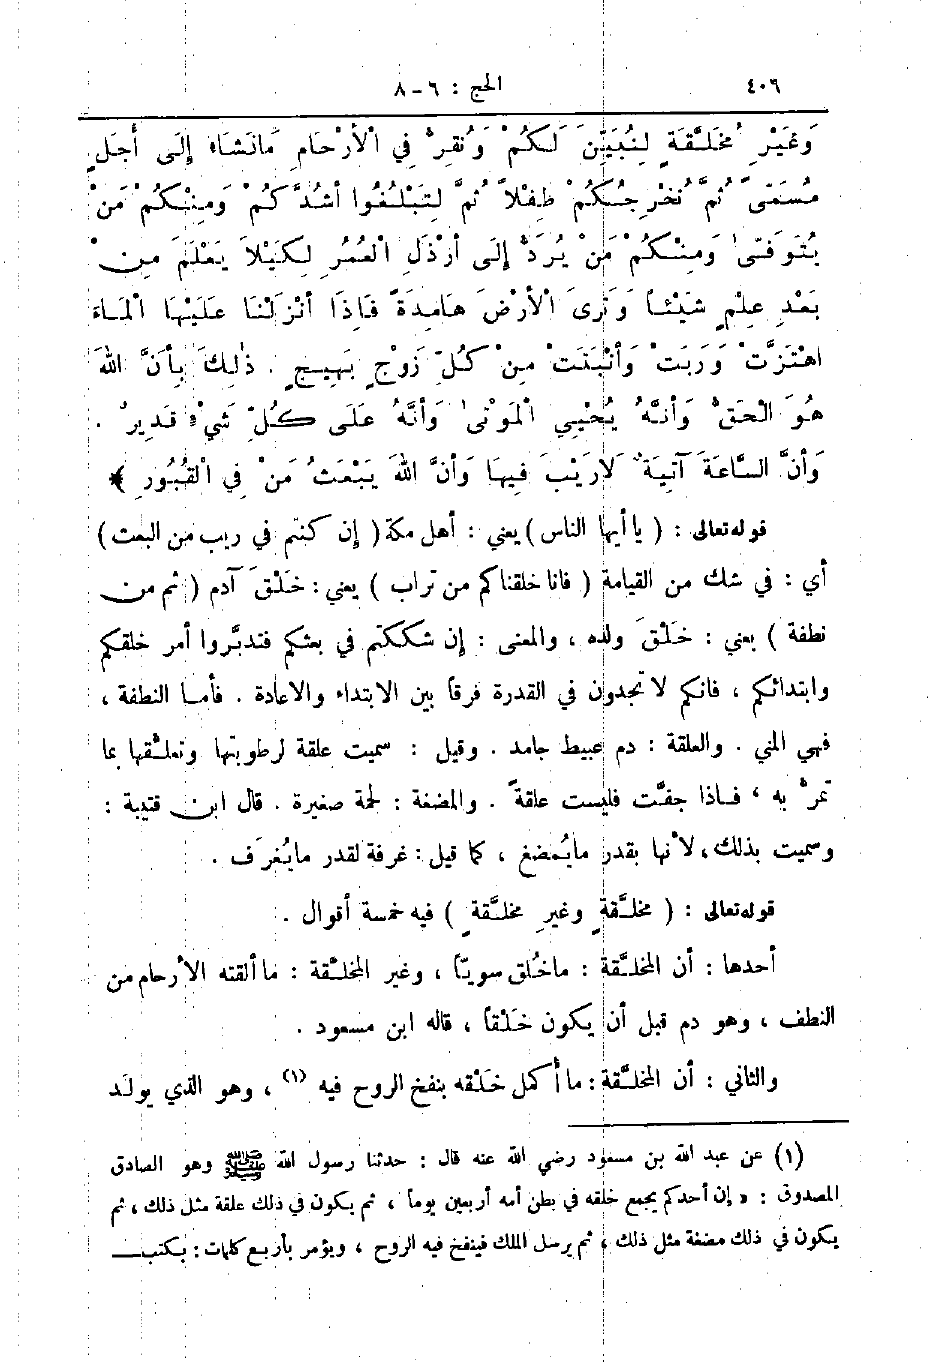 ٤٠٦ الحج : ٦-٨
وَغَيْرِ مُخَلَّقَةٍ لِنُبَيِّنَ لَكُمْ وَنُقِرُّ فِي الْأَرْحَامِ مَانَشَاءُ إِلَى أَجَلٍ
مُسَمّىً ثُمَّ نُخْرِجُكُمْ طِفْلاً ثُمَّ لِتَبْلُغُوا أَشُدَّكُمْ وَمِنْكُمْ مَنْ
يُتَوَفَّىٰ وَمِنْكُمْ مَنْ يُرَدُّ إِلَى أَرْذَلِ الْعُمُرِ لِكَيْلاَ يَعْلَمَ مِنْ
بَعْدِ عِلْمٍ شَيْئاً وَتَرَى الْأَرْضَ هَامِدَةً فَإِذَا أَنْزَلْنَا عَلَيْهَا الْمَاءَ
اهْتَزَّتْ وَرَبَتْ وَأَنْبَتَتْ مِنْ كُلِّ زَوْجٍ بَهِيجٍ . ذٰلِكَ بِأَنَّ اللهَ
هُوَ الْحَقُّ وَأَنَّهُ يُحْيِي الْمَوْتىٰ وَأَنَّهُ عَلَى كُلِّ شَيْءٍ قَدِيرٌ .
وَأَنَّ السَّاعَةَ آتِيَةٌ لاَرَيْبَ فِيهَا وَأَنَّ اللهَ يَبْعَثُ مَنْ فِي الْقُبُورِ ﴾
قوله تعالى : ( يا أيها الناس ) يعني : أهل مكة ( إن كنتم في ريب من البعث )
أي : في شك من القيامة ( فانا خلقناكم من تراب ) يعني : خَلْقَ آدم ( ثم من
نطفة ) يعني : خَلْقَ ولده ، والمعنى : إن شككتم في بعثكم فتدبَّروا أمر خلقكم
وابتدائكم ، فانكم لا تجدون في القدرة فرقاً بين الابتداء والاعادة . فأما النطفة ،
فهي المني . والعلقة : دم عبيط جامد . وقيل : سميت علقة لرطوبتها وتعلُّقها بما
تمرُّ به ، فاذا جفَّت فليست علقةً . والمضغة : لحمة صغيرة . قال ابن قتيبة :
وسميت بذلك، لأنها بقدر مايُمضغ ، كما قيل : غرفة لقدر مايُغرَف .
قوله تعالى : ( مخلَّقةٍ وغيرِ مخلَّقةٍ ) فيه خمسة أقوال .
أحدها : أن المخلَّقة : ماخُلق سويّاً ، وغير المخلَّقة : ما ألقته الأرحام من
النطف ، وهو دم قبل أن يكون خَلْقاً ، قاله ابن مسعود .
والثاني : أن المخلَّقة : ما أُكمل خَلْقه بنفخ الروح فيه (١) ، وهو الذي يولَد
(١) عن عبد الله بن مسعود رضي الله عنه قال : حدثنا رسول الله ﷺ وهو الصادق
المصدوق : « إن أحدكم يجمع خلقه في بطن أمه أربعين يوماً ، ثم يكون في ذلك علقة مثل ذلك ، ثم
يكون في ذلك مضغة مثل ذلك ، ثم يرسل الملك فينفخ فيه الروح ، ويؤمر بأربع كلمات : بكتب